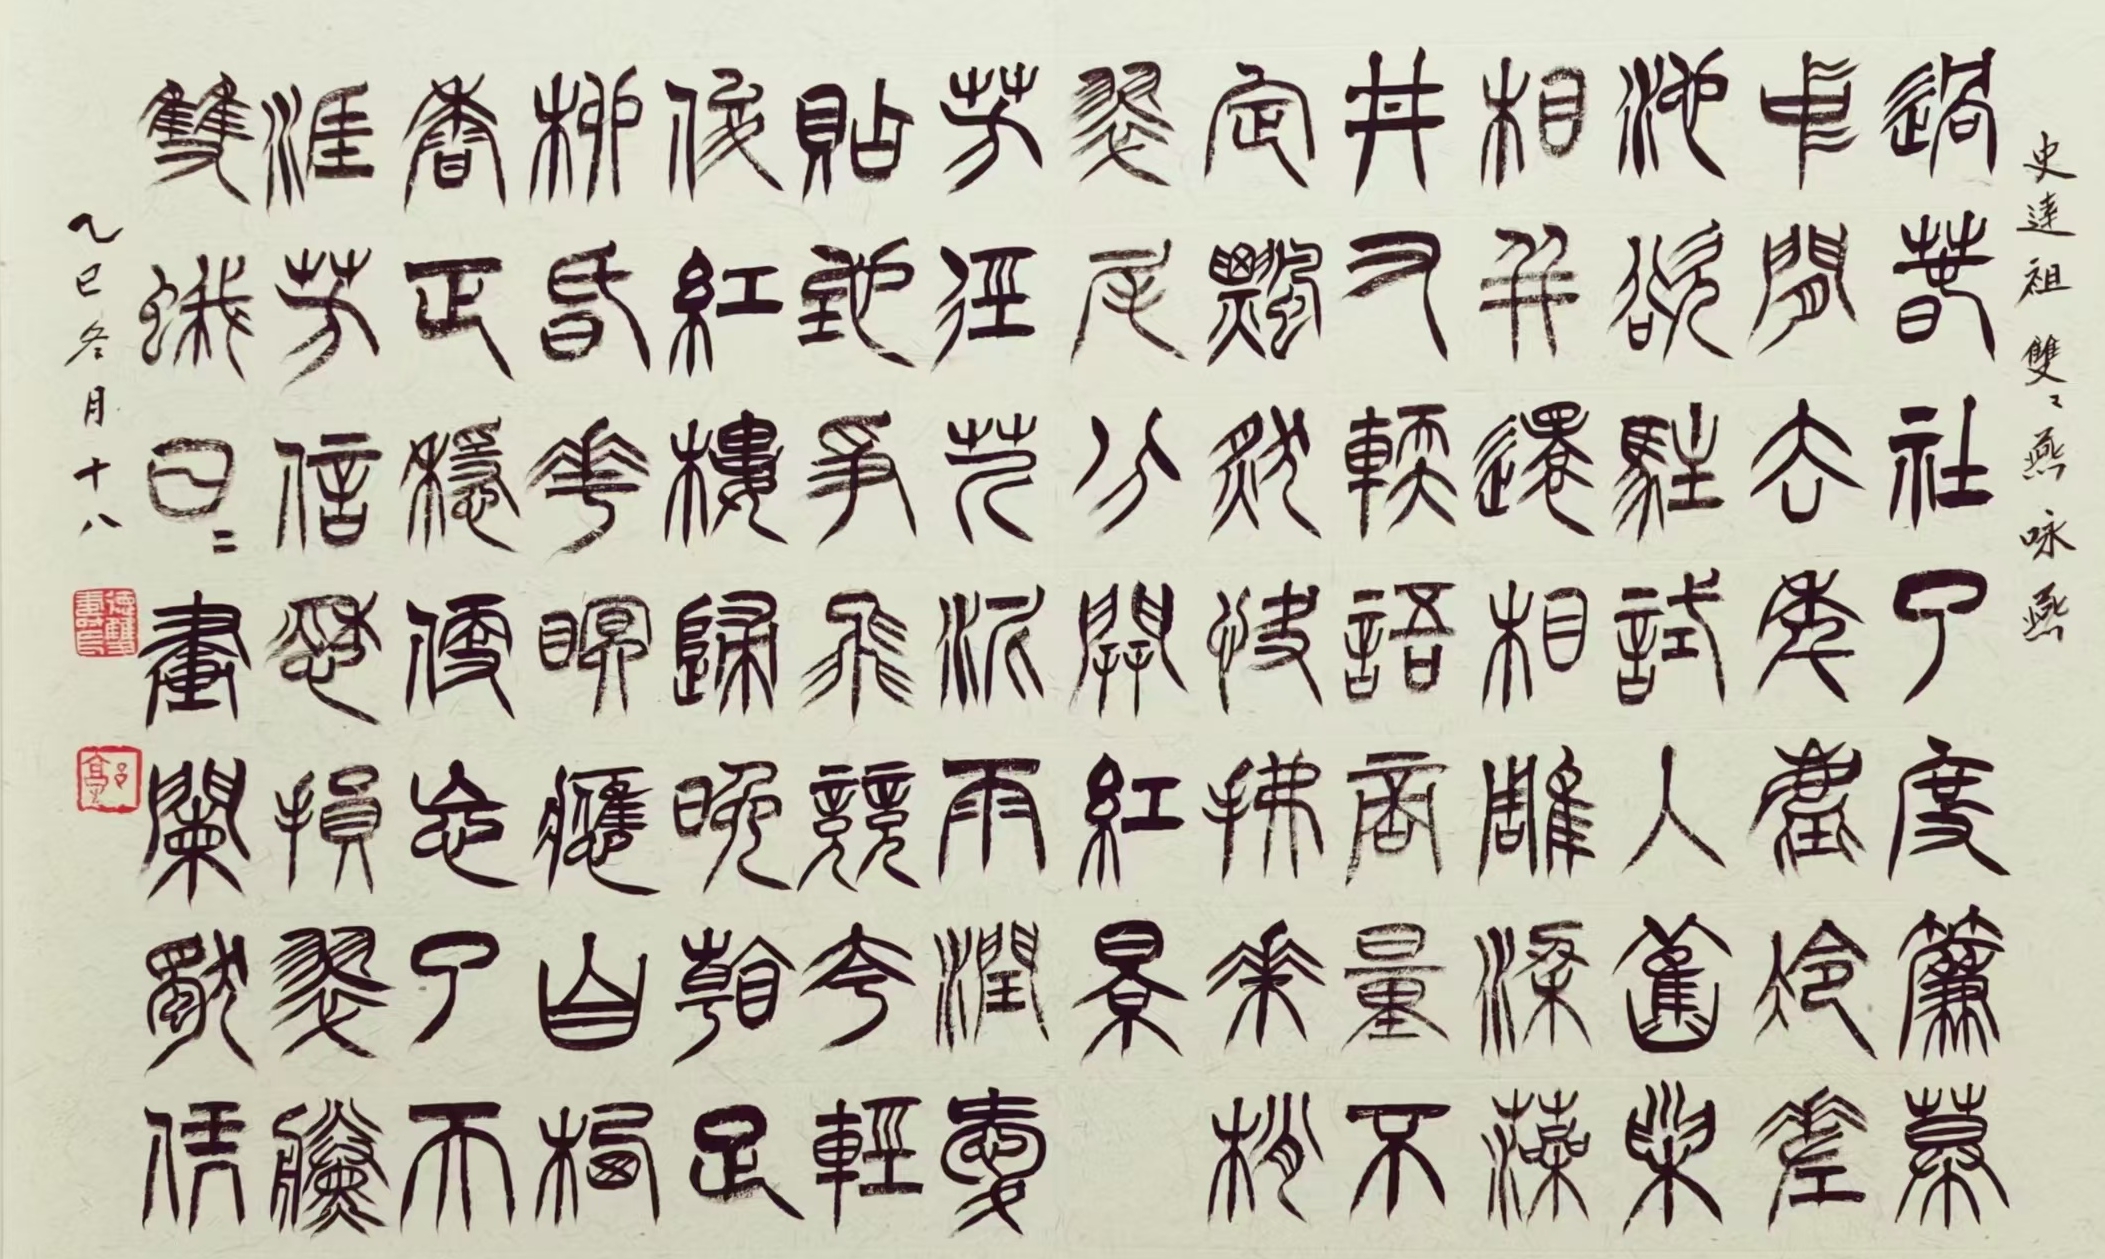 史達祖 雙〻燕 咏燕
過春社了度簾幕
中間去年塵冷差
池欲駐試入舊巢
相并還相雕梁藻
井又輭語商量不
定飄然快拂花梢
翠尾分開紅景
芳徑芹泥雨潤愛
貼地爭飛競夸輕
俊紅樓歸晚看足
柳昏花暝應自棲
香正穩便忘了天
涯芳信愁損翠黛
雙蛾日〻畫闌獨凭
乙巳冬月十八